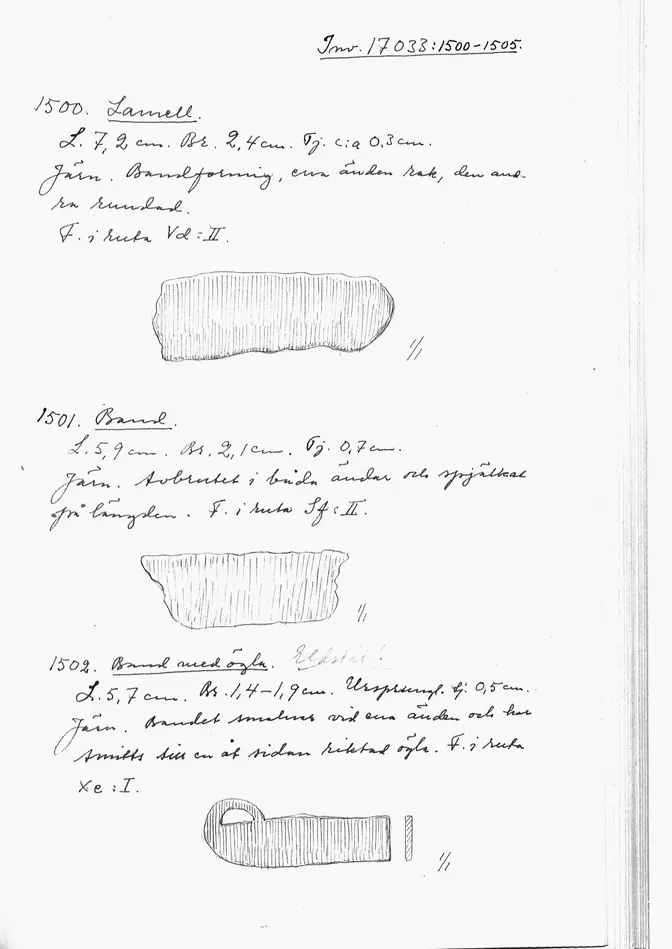 Inv. 17033:1500-1505.
1500. Lamell.
L. 7,2 cm. Br. 2,4 cm. Tj. c:a 0,3 cm.
Järn. Bandformig, ena änden rak, den and-
ra rundad.
F. i ruta Vd:II.
1/1
1501. Band.
L. 5,9 cm. Br. 2,1 cm. Tj. 0,7 cm.
Järn. Avbrutet i båda ändar och spjälkat
på längden. F. i ruta Sf:II.
1/1
1502. Band med ögla. Eldstål?
L. 5,7 cm. Br. 1,4-1,9 cm. Ursprungl. tj. 0,5 cm.
Järn. Bandet smalnar vid ena änden och har
smitts till en åt sidan riktad ögla. F. i ruta
Xe:I.
1/1